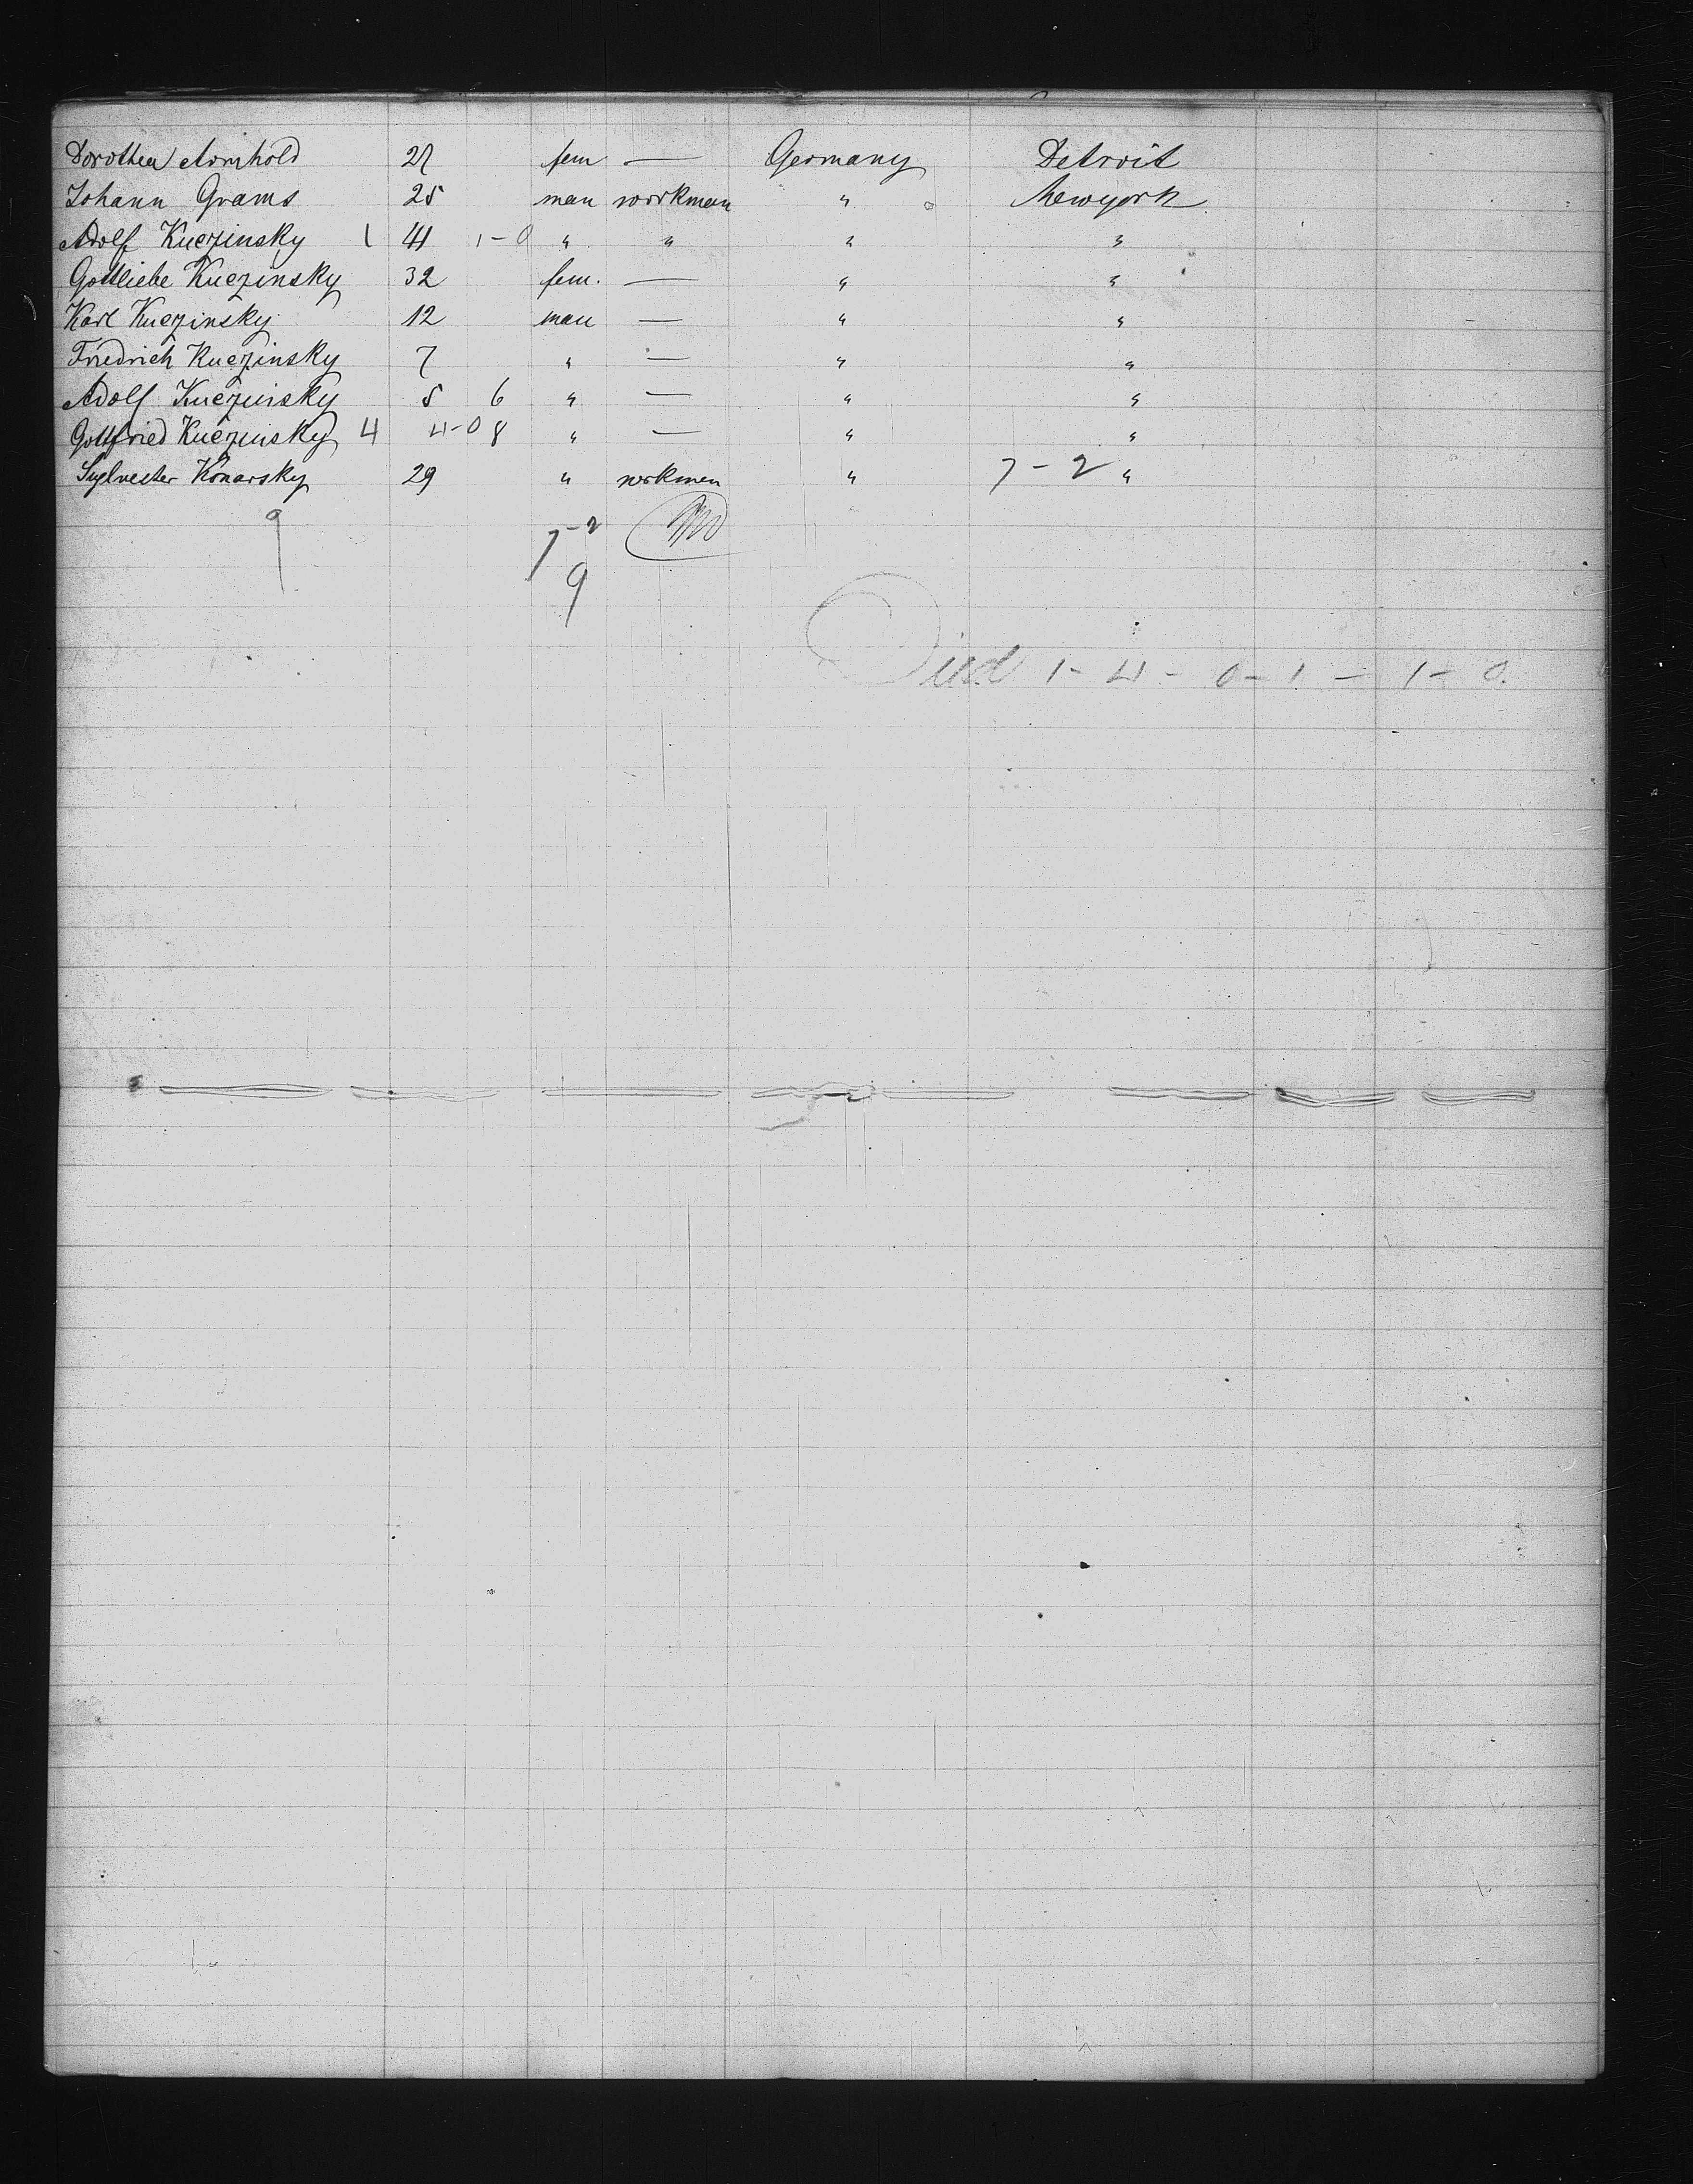 Dorothea Arnhold 27 fem — Germany Detroit
Johann Grams 25 man workman " Newyork
Adolf Kuczinsky 1 41 1-0 " " " "
Gottliebe Kuczinsky 32 fem. — " "
Karl Kuczinsky 12 man — " "
Friedrich Kuczinsky 7 " — " "
Adolf Kuczinsky 5 6 " — " "
Gottfried Kuczinsky 4 4-0 8 " — " "
Sylvester Konarsky 29 " workmen " 7-2 "
9 7-2
9
Died 1-4-0-1-1-0